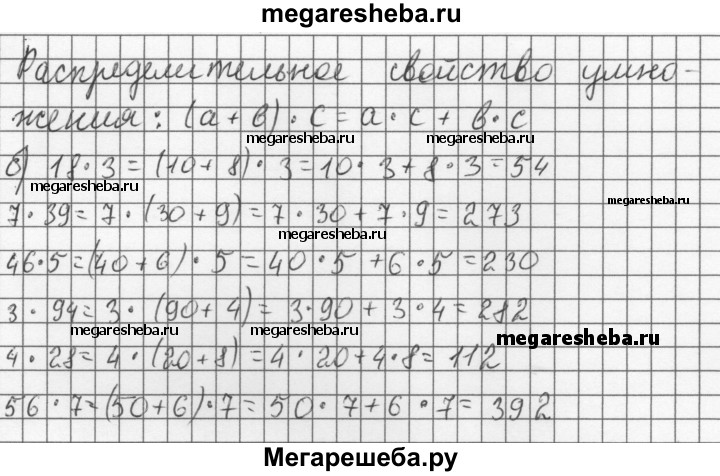 megaresheba.ru
Распределительное свойство умно-
жения: (а + в) · с = а · с + в · с
megaresheba.ru megaresheba.ru
б) 18 · 3 = (10 + 8) · 3 = 10 · 3 + 8 · 3 = 54
megaresheba.ru megaresheba.ru
7 · 39 = 7 · (30 + 9) = 7 · 30 + 7 · 9 = 273
megaresheba.ru
46 · 5 = (40 + 6) · 5 = 40 · 5 + 6 · 5 = 230
3 · 94 = 3 · (90 + 4) = 3 · 90 + 3 · 4 = 282
megaresheba.ru megaresheba.ru megaresheba.ru
4 · 28 = 4 · (20 + 8) = 4 · 20 + 4 · 8 = 112
56 · 7 = (50 + 6) · 7 = 50 · 7 + 6 · 7 = 392
Мегарешеба.ру